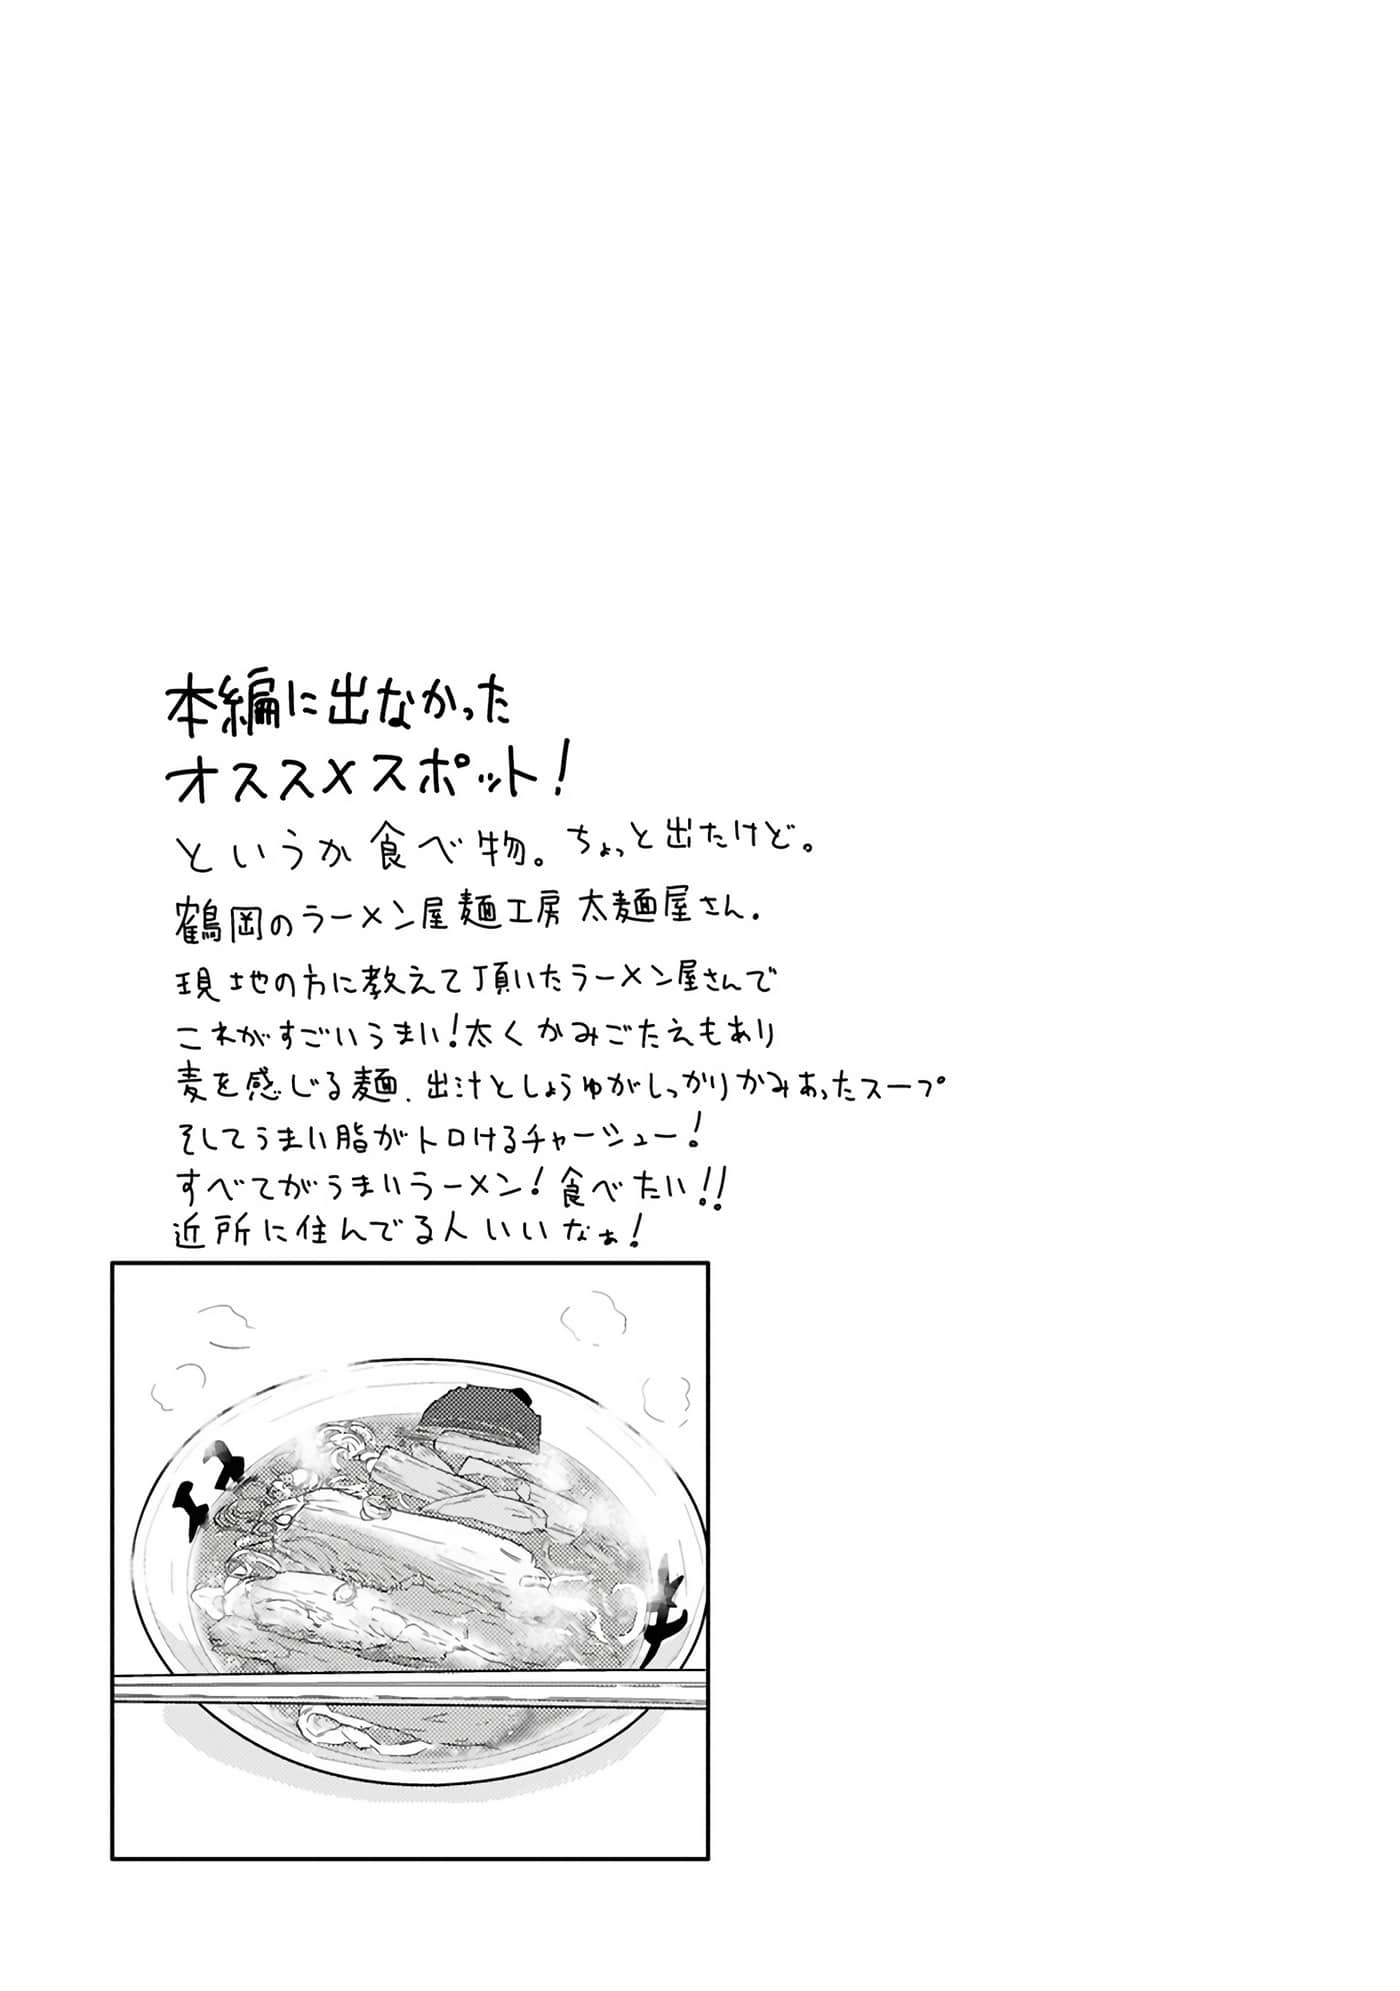 本編に出なかった
オススメスポット!
というか食べ物。ちょっと出たけど。
鶴岡のラーメン屋 麺工房 太麺屋さん.
現地の方に教えて頂いたラーメン屋さんで
これがすごいうまい!太くかみごたえもあり
麦を感じる麺、出汁としょうゆがしっかりかみあったスープ
そしてうまい脂がトロけるチャーシュー!
すべてがうまいラーメン!食べたい!!
近所に住んでる人いいなぁ!